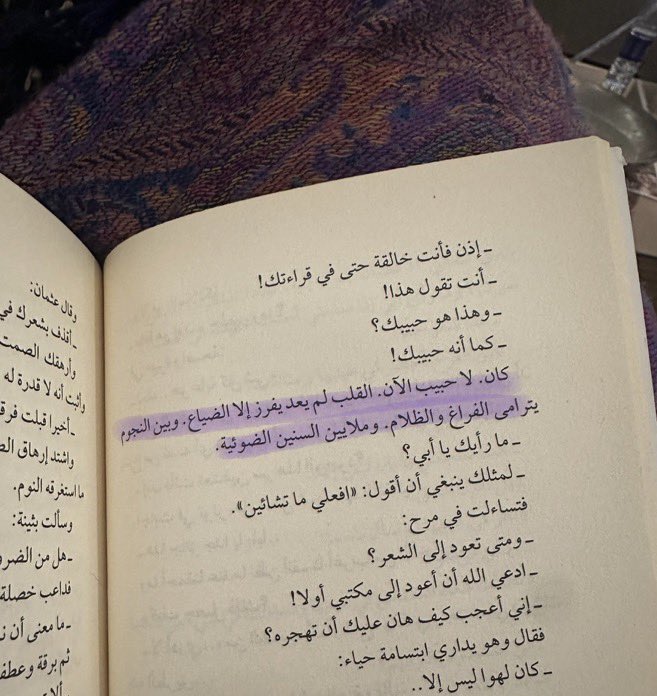 ـ إذن فأنت خالقة حتى في قراءتك!
ـ أنت تقول هذا!
ـ وهذا هو حبيبك؟
ـ كما أنه حبيبك!
كان. لا حبيب الآن. القلب لم يعد يفرز إلا الضياع. وبين النجوم
يترامى الفراغ والظلام. وملايين السنين الضوئية.
ـ ما رأيك يا أبي؟
ـ لمثلك ينبغي أن أقول: «افعلي ما تشائين».
فتساءلت في مرح:
ـ ومتى تعود إلى الشعر؟
ـ ادعي الله أن أعود إلى مكتبي أولا!
ـ إني أعجب كيف هان عليك أن تهجره؟
فقال وهو يداري ابتسامة حياء:
ـ كان لهوا ليس إلا..
وقال عثمان:
ـ أقذف بشعرك في
وأرهقك الصمت
وأثبت أنه لا قدرة له
ـ أخيرا قبلت
واشتد إرهاق
ما استغرقه النوم.
وسألت بثينة:
ـ هل من
فداعب خصلة
ـ ما معنى أن
ثم برقة